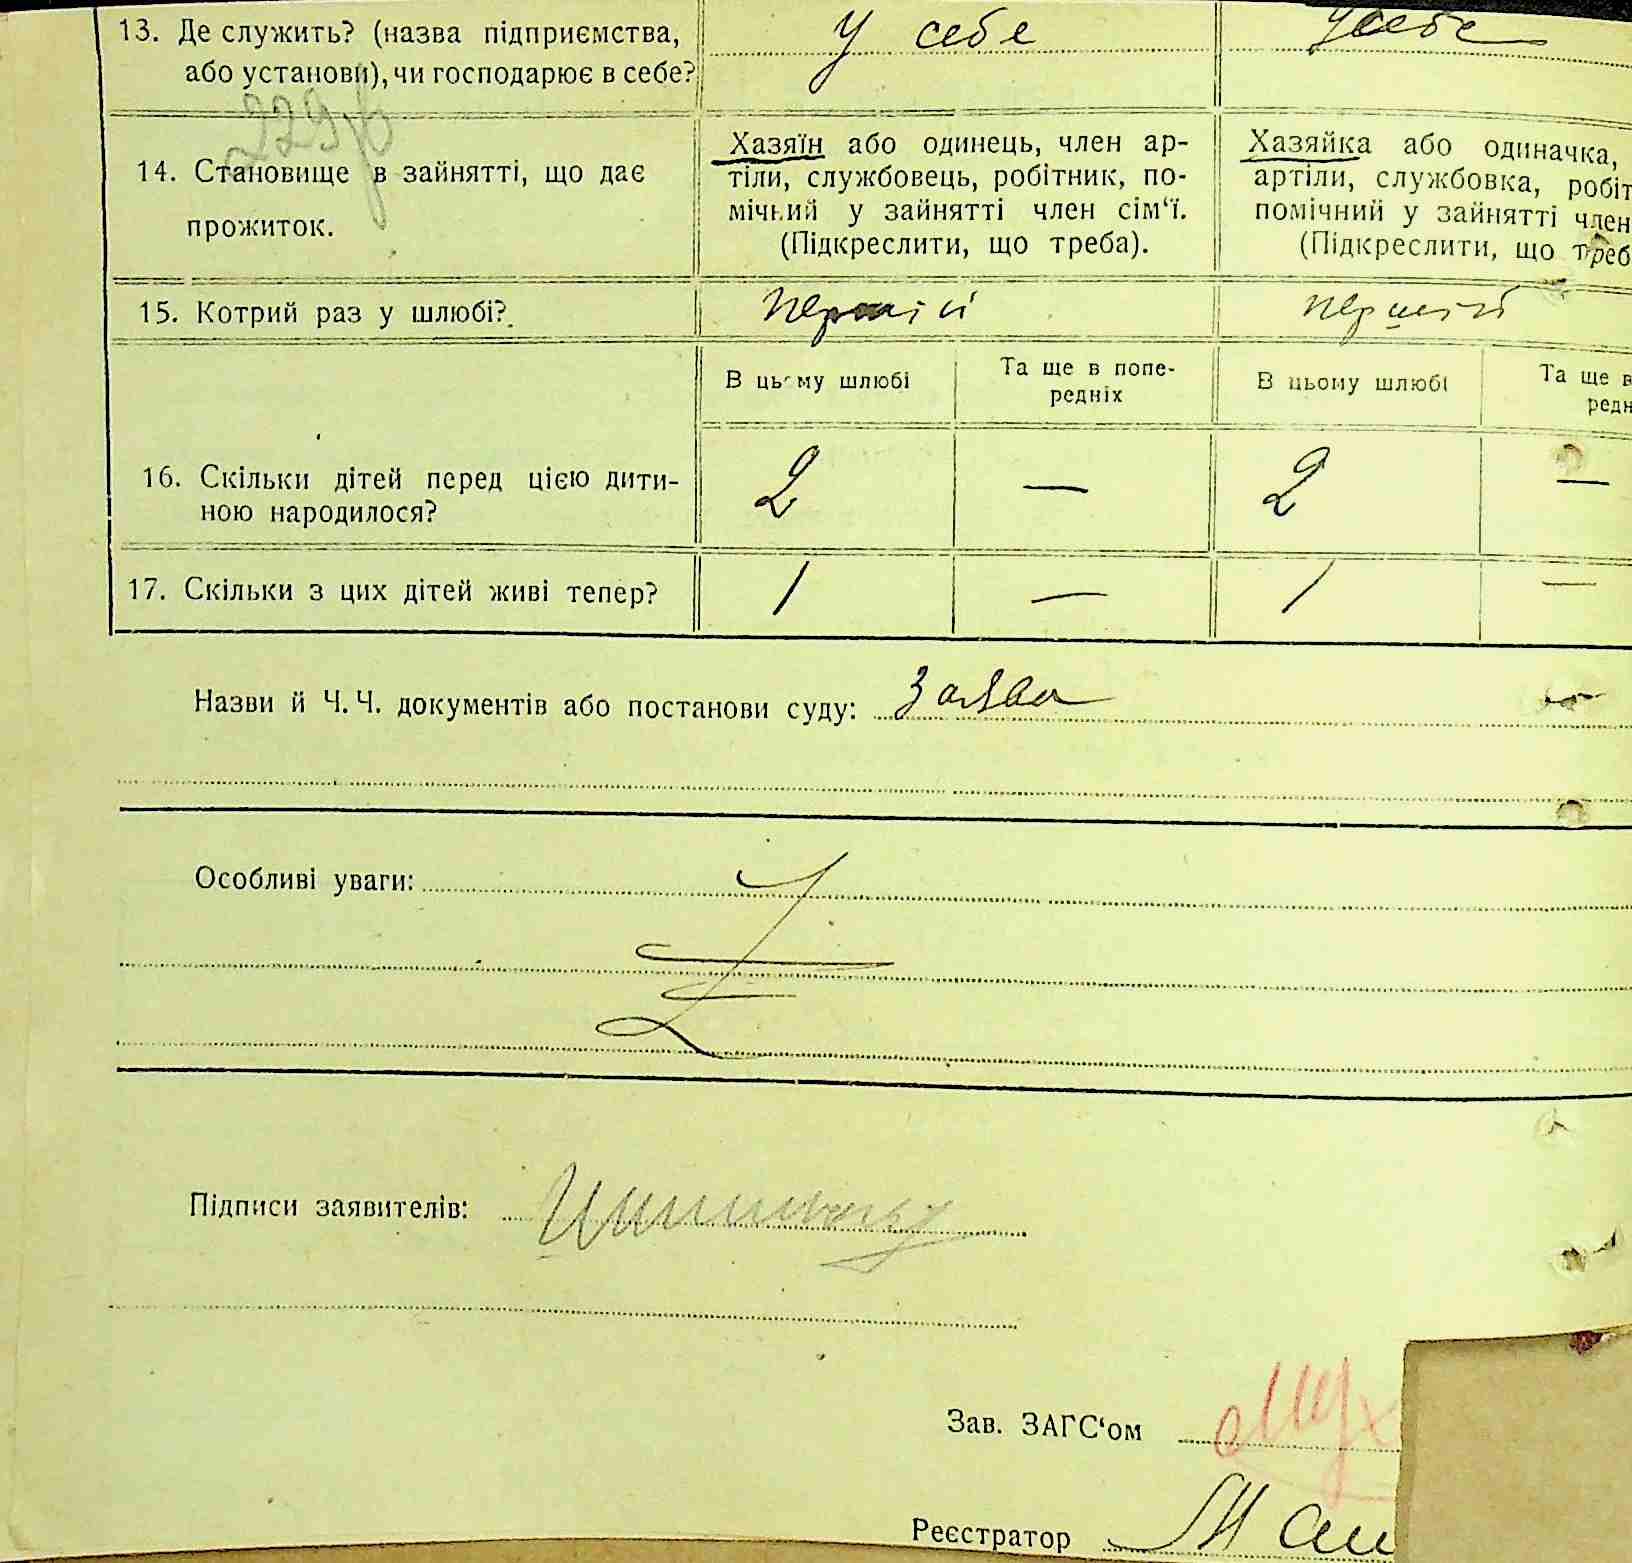 13. Де служить? (назва підприємства, у себе у себе
або установи), чи господарює в себе?
Хазяїн або одинець, член ар- Хазяйка або одиначка,
14. Становище в зайнятті, що дає тіли, службовець, робітник, по- артіли, службовка, робіт
прожиток. мічний у зайнятті член сім‘ї. помічний у зайнятті член
(Підкреслити, що треба). (Підкреслити, що треб
15. Котрий раз у шлюбі? перший перший
В цьому шлюбі Та ще в попе- В цьому шлюбі Та ще в
редніх редн
16. Скільки дітей перед цією дити- 2 — 2 —
ною народилося?
17. Скільки з цих дітей живі тепер? 1 — 1 —
Назви й Ч. Ч. документів або постанови суду: Заява
Особливі уваги:
Підписи заявителів:
Зав. ЗАГС‘ом
Реєстратор